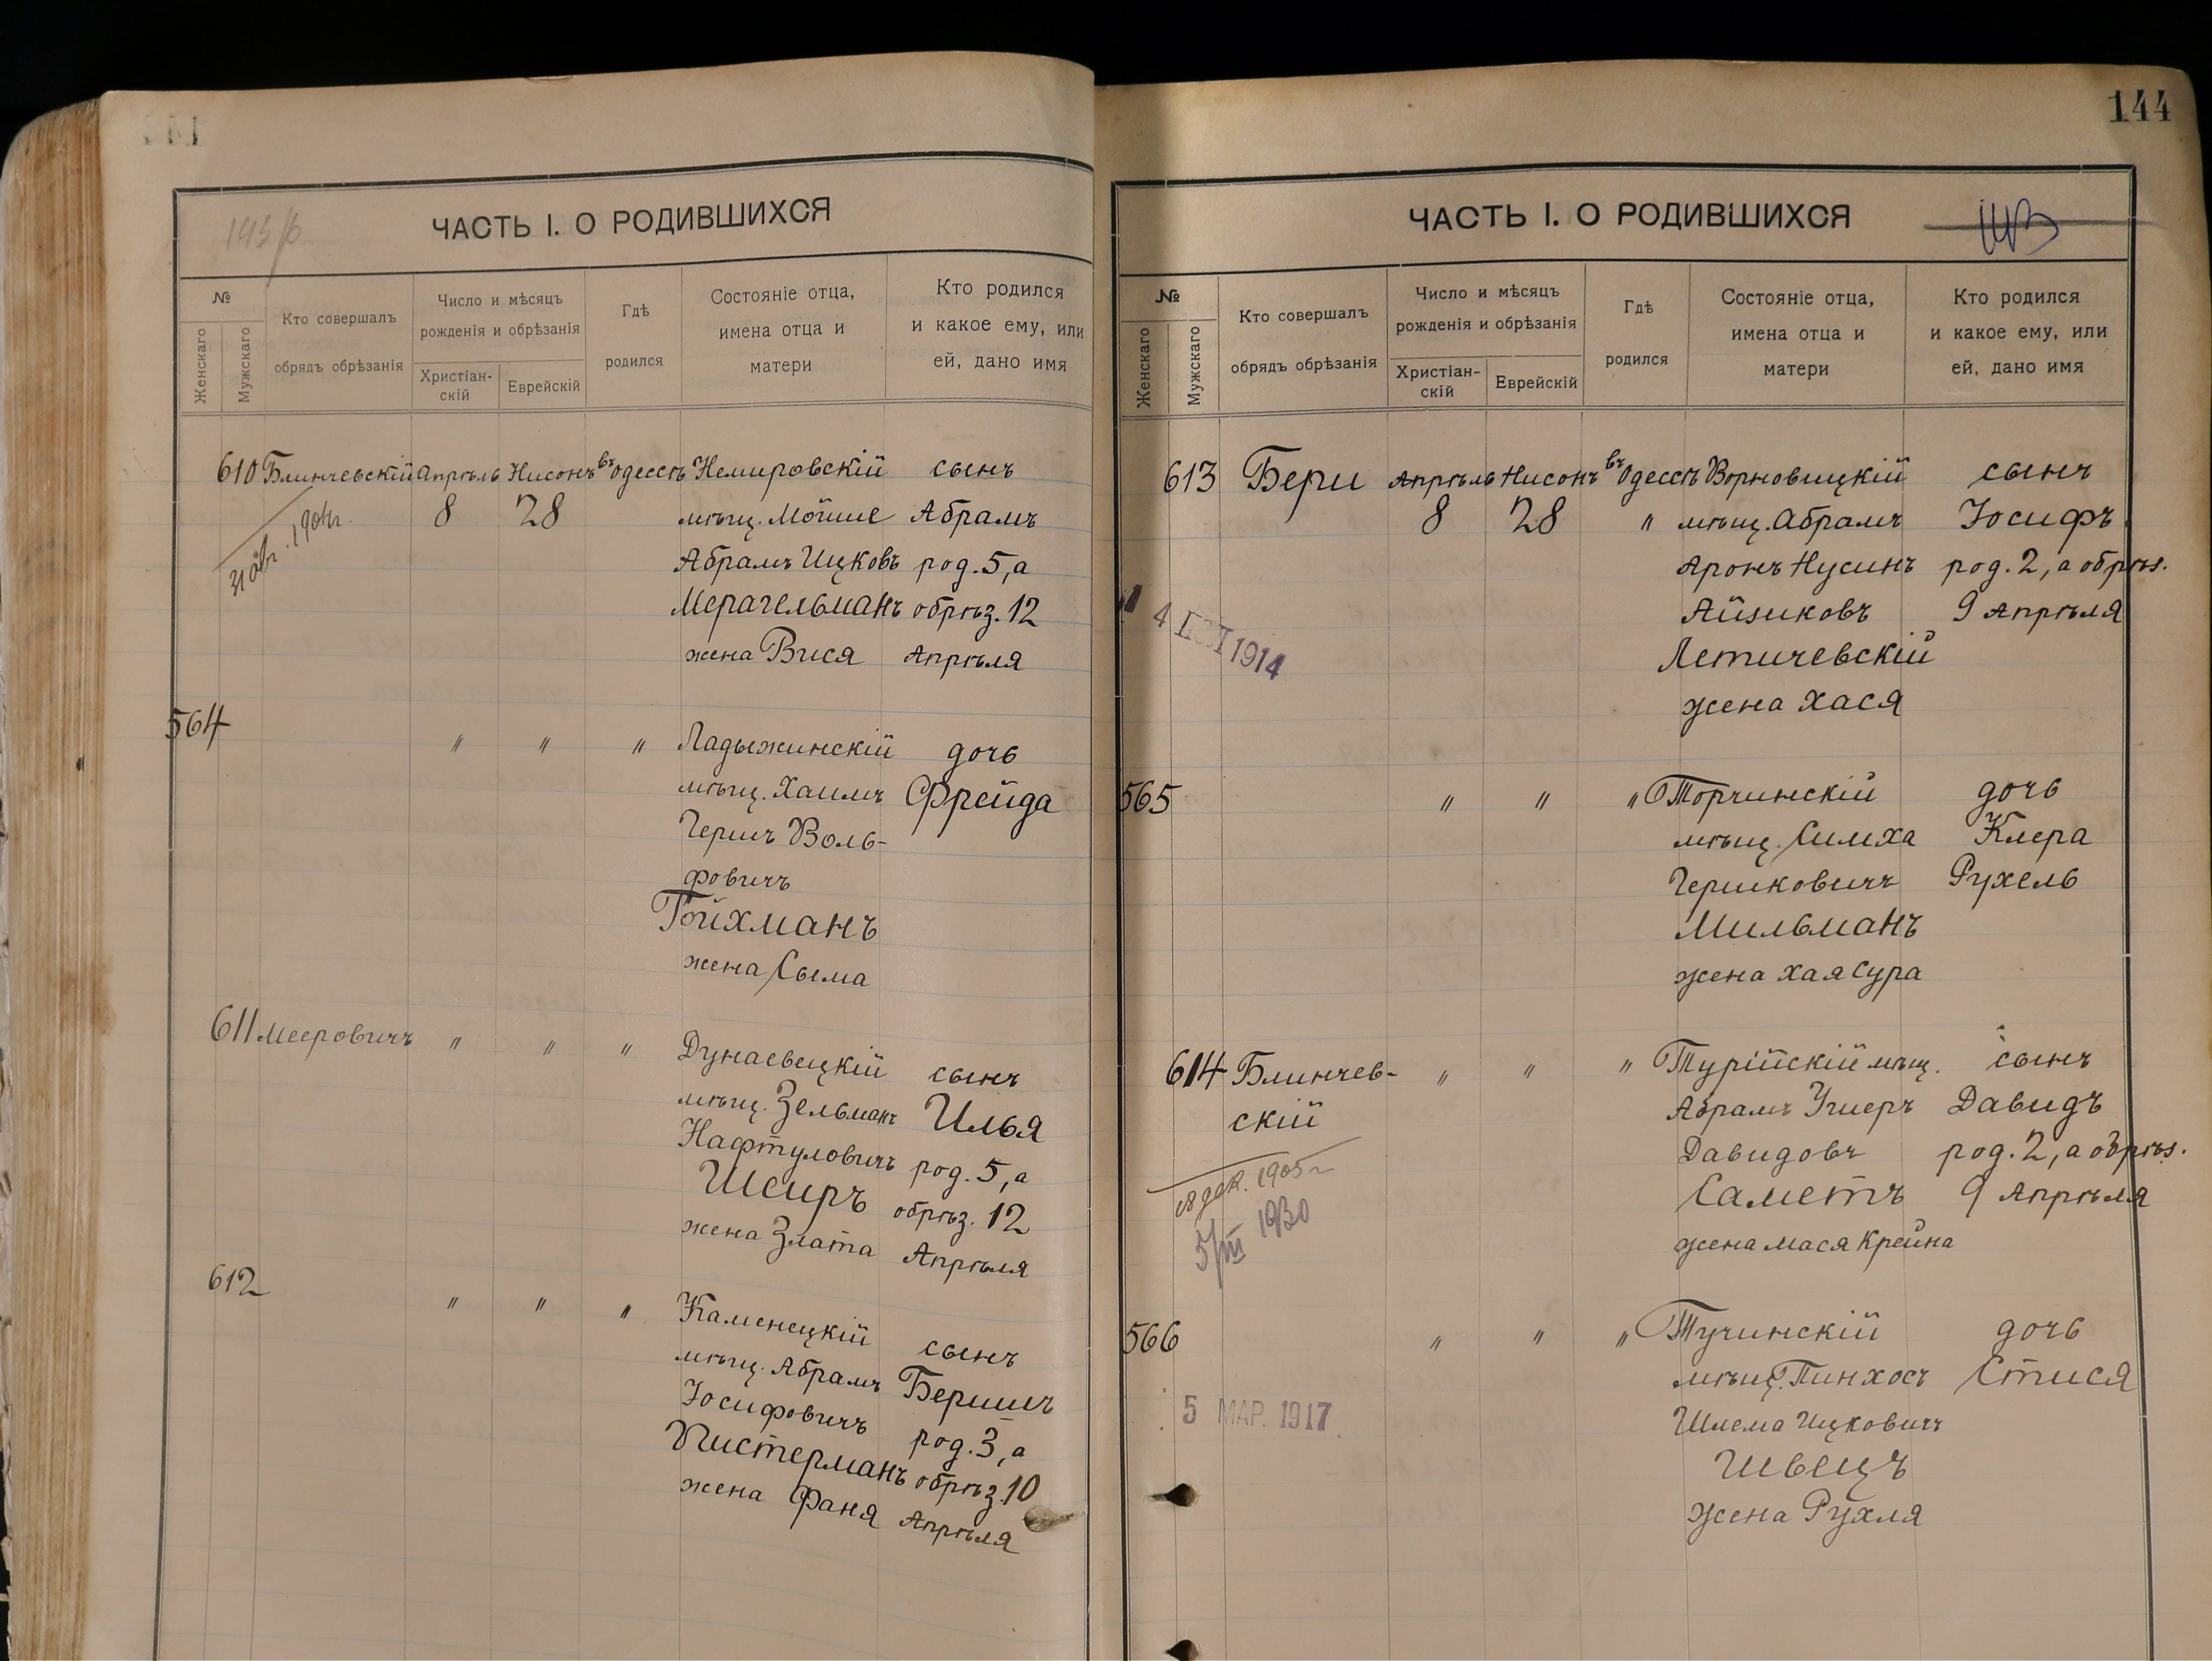 ЧАСТЬ I. О РОДИВШИХСЯ
№
Женскаго
Мужскаго
Кто совершалъ
обрядъ обрѣзанія
Число и мѣсяцъ
рожденія и обрѣзанія
Христіан-
скій
Еврейскій
Гдѣ
родился
Состояніе отца,
имена отца и
матери
Кто родился
и какое ему, или
ей, дано имя
610 Блинчевскій Апрѣль Нисонъ въ Одессѣ Немировскій сынъ
8 28 мѣщ. Мойше Абрамъ
Абрамъ Ицковъ род. 5, а
Мерагельманъ обрѣз. 12
жена Вися Апрѣля
1904г.
564
" " " Ладыжинскій дочь
мѣщ. Хаимъ Фрейда
Гершъ Воль-
фовичъ
Гойхманъ
жена Сыма
611 Мееровичъ " " " Дунаевецкій сынъ
мѣщ. Зельманъ Илья
Нафтуловичъ род. 5, а
Шеиръ обрѣз. 12
жена Злата Апрѣля
612
" " " Каменецкій сынъ
мѣщ. Абрамъ Бершъ
Іосифовичъ род. 3, а
Пистерманъ обрѣз. 10
жена Фаня Апрѣля
144
ЧАСТЬ I. О РОДИВШИХСЯ
№
Женскаго
Мужскаго
Кто совершалъ
обрядъ обрѣзанія
Число и мѣсяцъ
рожденія и обрѣзанія
Христіан-
скій
Еврейскій
Гдѣ
родился
Состояніе отца,
имена отца и
матери
Кто родился
и какое ему, или
ей, дано имя
613 Бери Апрѣль Нисонъ въ Одессѣ Ворновицкій сынъ
8 28 " мѣщ. Абрамъ Іосифъ
Аронъ Нусинъ род. 2, а обрѣз.
Айзиковъ 9 Апрѣля
Летичевскій
жена Хася
4 1914
565 " " " Торчинскій дочь
мѣщ. Симха Клера
Гершковичъ Рухель
Мильманъ
жена Хая Сура
614 Блинчев- " " " Турійскій мѣщ. сынъ
скій Абрамъ Ушеръ Давидъ
Давидовъ род. 2, а обрѣз.
Саметъ 9 Апрѣля
жена Мася Крейна
18 дек. 1905г
5/III 1930
566 " " " Тучинскій дочь
мѣщ. Пинхосъ Стися
Шлема Ицковичъ
Швецъ
жена Рухля
5 МАР. 1917